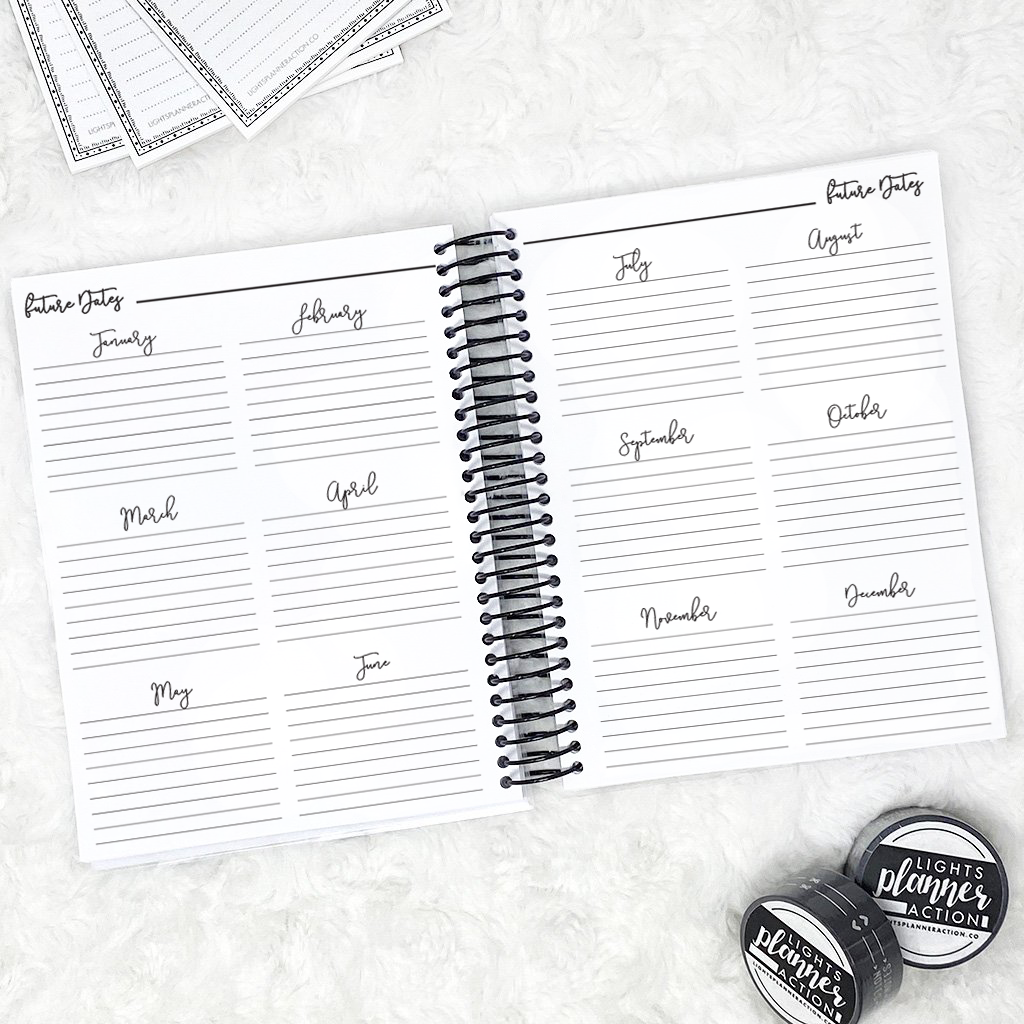 LIGHTSPL
LIGHTSPLANNERACT
LIGHTSPLANNERACTION.CO
Future Dates
January
February
March
April
May
June
Future Dates
July
August
September
October
November
December
LIGHTS
planner
ACTION
LIGHTSPLANNERACTION.CO
LIGHTS
planner
ACTION
HTSPLANNERACTION.CO